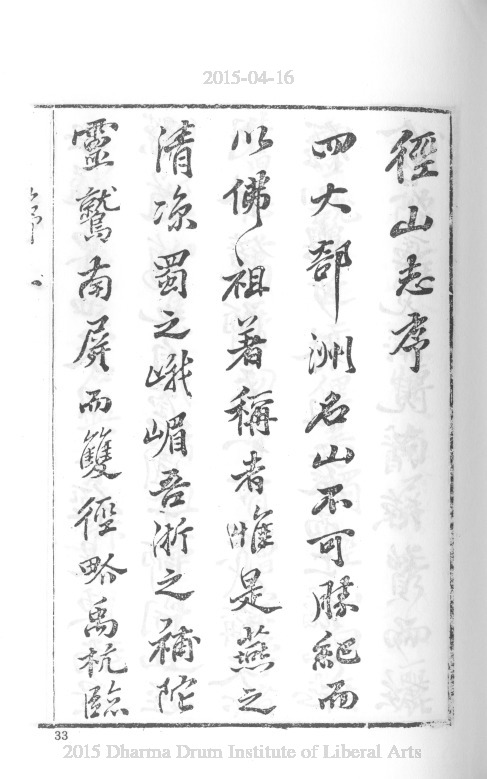 2015-04-16
徑山志序
四大部洲名山不可勝紀而
以佛祖著稱者惟是燕之
清涼蜀之峨嵋吾浙之補陀
靈鷲南屏而雙徑略禹杭臨
33
2015 Dharma Drum Institute of Liberal Arts